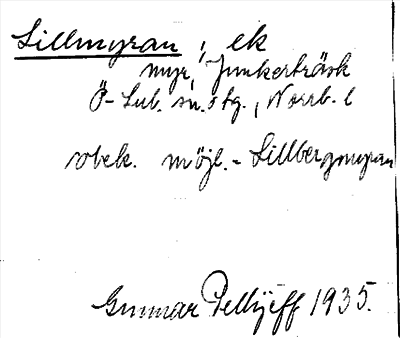 Lillmyran, ek
myr, Junkerträsk
Ö-Lul. sn. stg., Norrb. l
obek. möjl. = Lillbergmyran
Gunnar Pellijeff 1935.